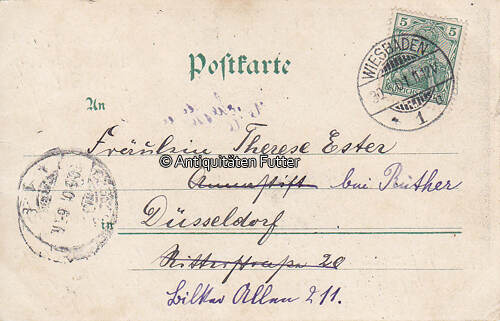 Postkarte
5
WIESBADEN
1
An
Fräulein Therese Ester
© Antiquitäten Futter
Annastift bei Rüther
in Düsseldorf
Ritterstraße 20
Bilker Allee 211.